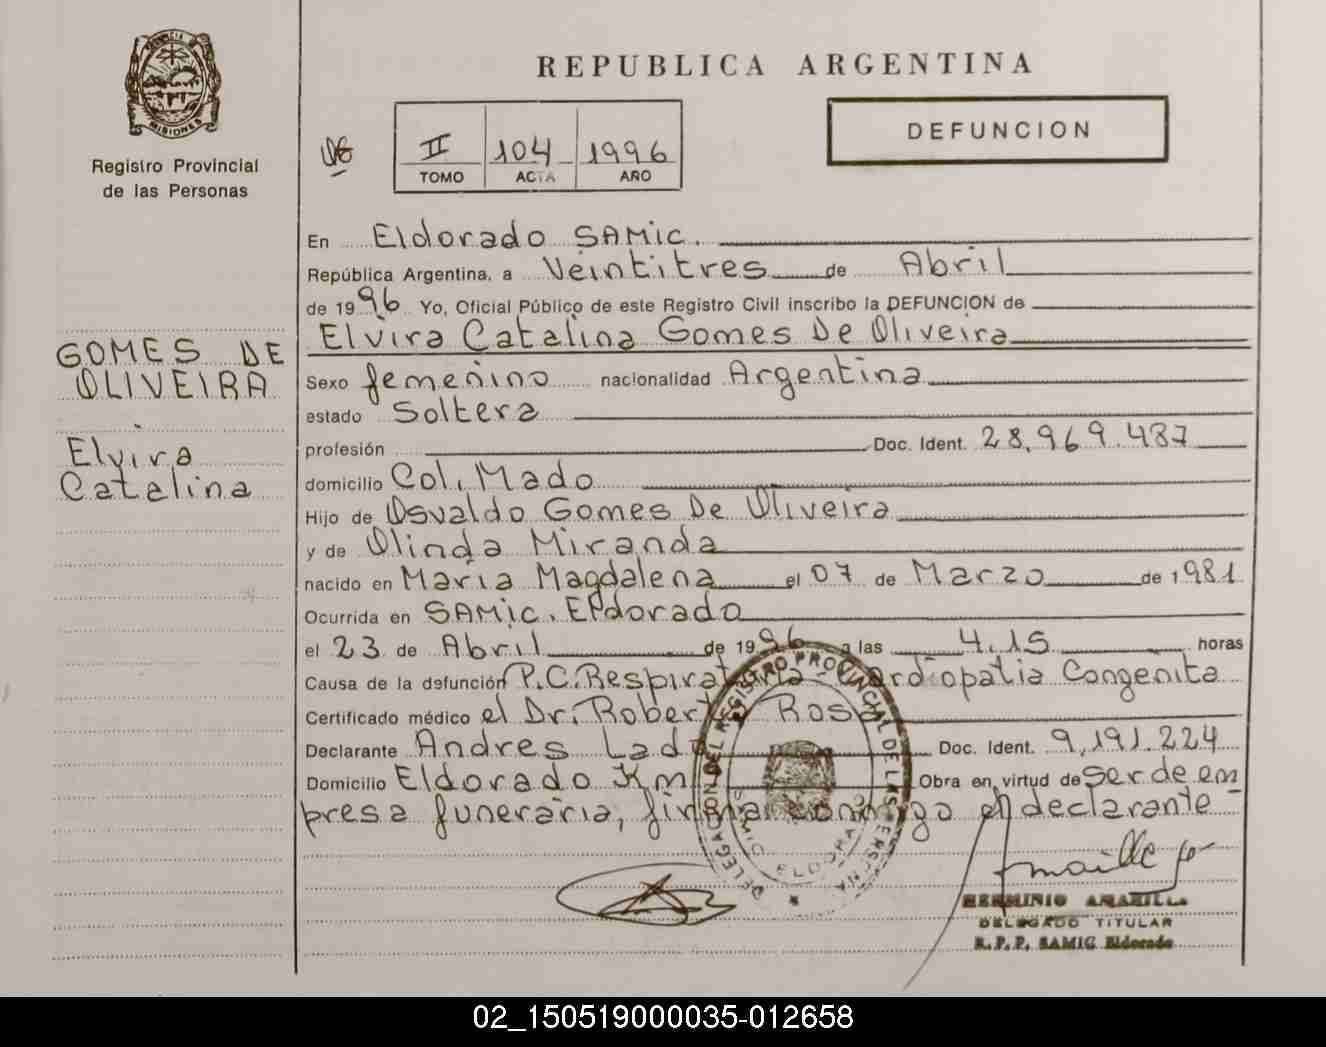 PROVINCIA DE
MISIONES
Registro Provincial
de las Personas
REPUBLICA ARGENTINA
DEFUNCION
II 104 1996
TOMO ACTA AÑO
GOMES DE
OLIVEIRA
Elvira
Catalina
En Eldorado SAMic.
República Argentina, a Veintitres de Abril
de 1996 Yo, Oficial Público de este Registro Civil inscribo la DEFUNCION de
Elvira Catalina Gomes De Oliveira
Sexo femenino nacionalidad Argentina
estado Soltera
profesión Doc. Ident. 28,969.487
domicilio Col. Mado
Hijo de Osvaldo Gomes De Oliveira
y de Olinda Miranda
nacido en María Magdalena el 07 de Marzo de 1981
Ocurrida en SAMic. Eldorado
el 23 de Abril de 1996 a las 4.15 horas
Causa de la defunción P.C.Respiratoria - Cardiopatia Congenita
Certificado médico el Dr. Roberto Rosa
Declarante Andres Lad Doc. Ident. 9,191.224
Domicilio Eldorado Km Obra en virtud de ser de em
presa funeraria, firma conmigo el declarante -
DELEGACION DEL REGISTRO PROVINCIAL DE LAS PERSONAS
ELDORADO
HERMINIO AMARILLA
DELEGADO TITULAR
R.P.P. SAMIC Eldorado
02_150519000035-012658